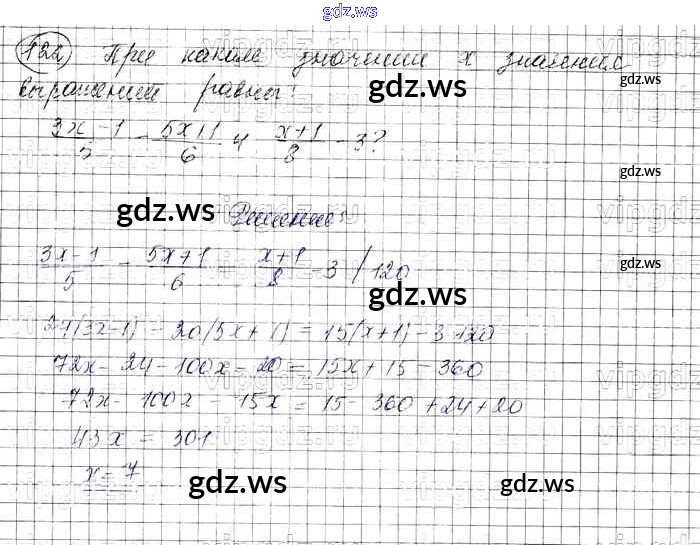 gdz.ws
122) При каком значении х значения
выражений равны:
gdz.ws
3x-1/5 - 5x+1/6 и x+1/8 - 3?
gdz.ws
gdz.ws
Решение:
3x-1/5 - 5x+1/6 = x+1/8 - 3 / 120
gdz.ws
gdz.ws
24(3x-1) - 20(5x+1) = 15(x+1) - 3·120
72x - 24 - 100x - 20 = 15x + 15 - 360
72x - 100x - 15x = 15 - 360 + 24 + 20
43x = 301
x = 7
gdz.ws
gdz.ws